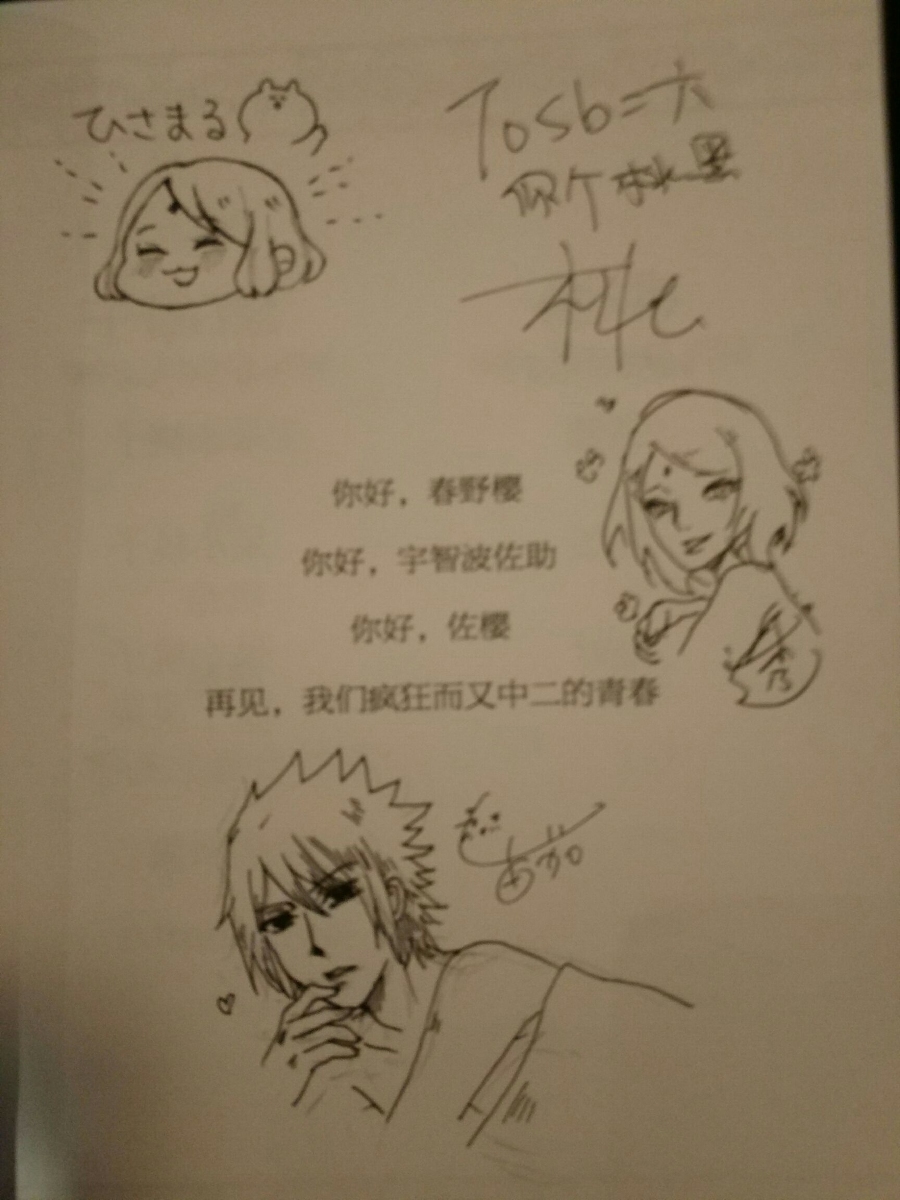 ひさまる
To sb=六
桃
你好，春野樱
你好，宇智波佐助
你好，佐樱
再见，我们疯狂而又中二的青春